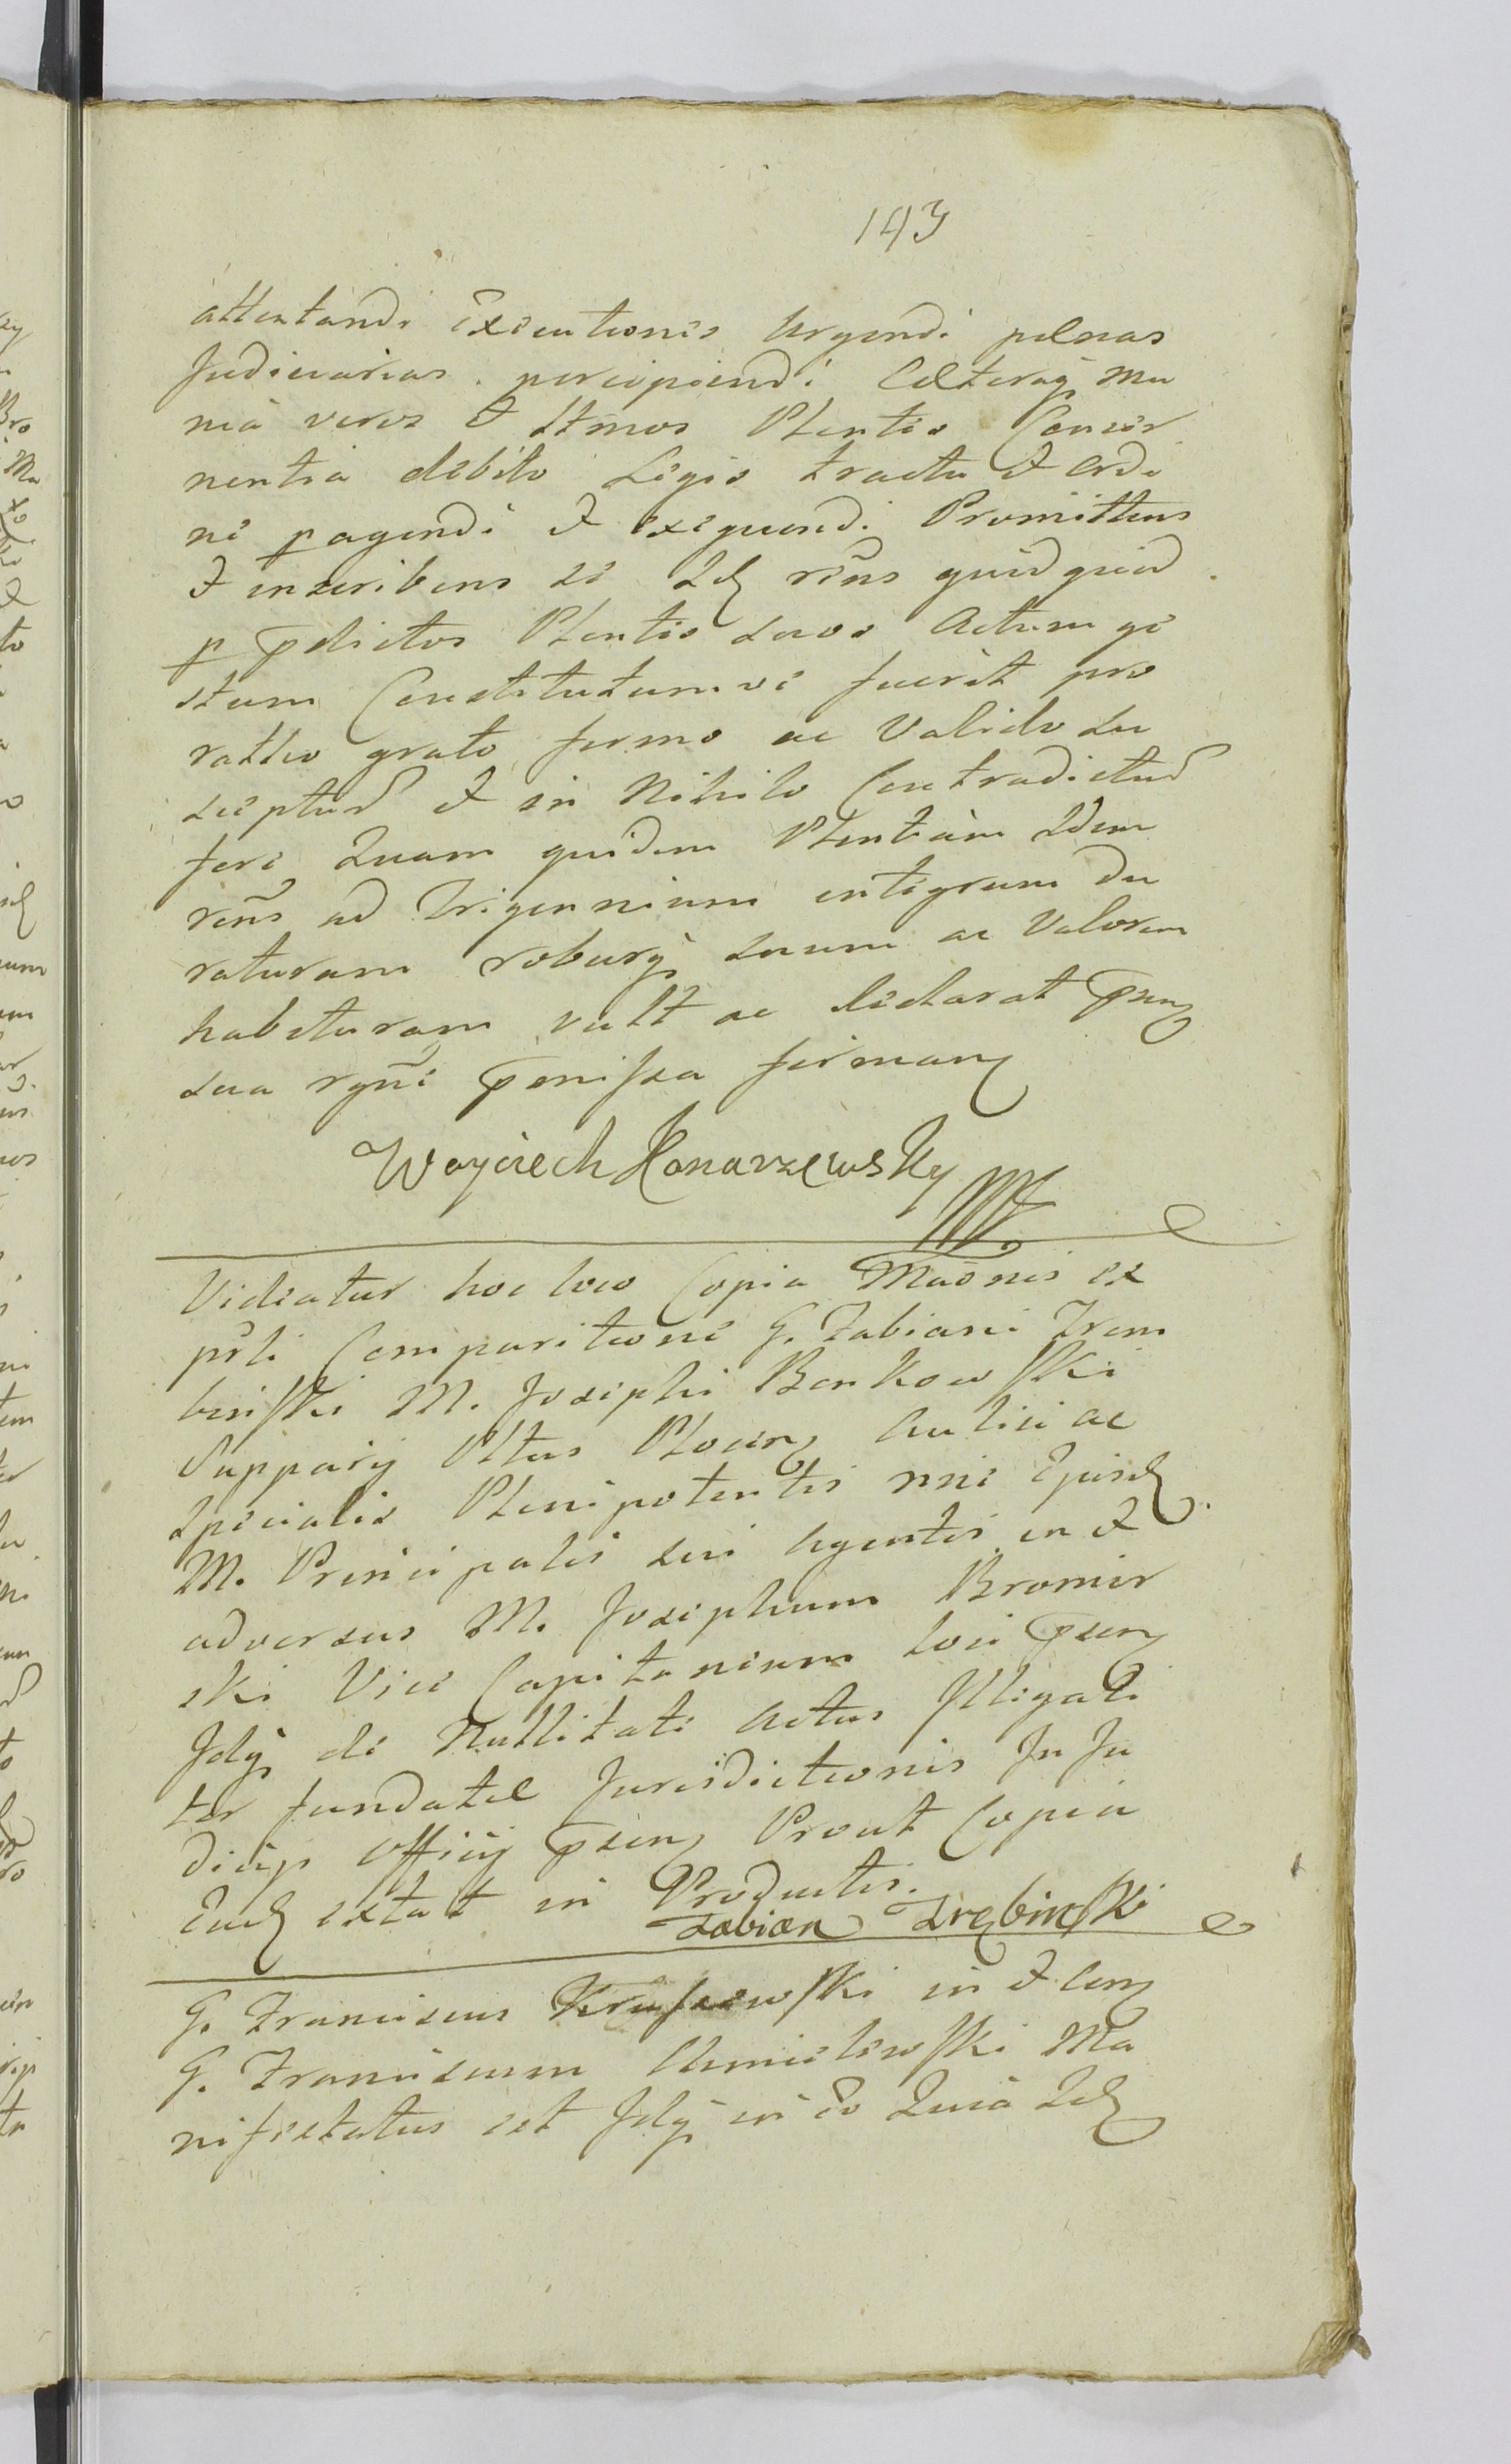 143
attentandi Executiones Urgendi pænas
Judiciarias percipiendi Cæteraq mu
nia veros et ltmos Plentes Concer
nentia debito Legis tractu et Ordi
ne pagendi et exequendi Promittens
et inscribens se Id rêns quidquid
p pdictos Plentes suos Actum ge
stum Constitutumve fuerit pro
ratho grato firmo ac Valido Su
scepturū et in Nihilo Contradicturū
fore Quam quidem Plentiam Idem
rêns ad Trigennium integrum Du
raturam roburq suum ac Valorem
habituram vult ac declarat psen
sua rgni pmissa firman
Woyciech Konarzewsky
Videatur hoc loco Copia Maõnis ex
prsli Comparitione G. Fabiani Trem
binski M. Josephi Benkowski
Supparij Pltus Plocen Aulici ac
Specialis Plenipotentis nnie Ejusd
M. Principalis sui Agentis in et
adversus M. Josephum Bromir
ski Vice Capitaneum loci psen
Idq de Nullitate Actus Illegali
ter fundatæ Jurisdictionis In Ju
dicys Officij psen Prout Copia
Eiusd extat in Productis.
Fabian Trębinski
G. Franciscus Kruszewski in et con
G. Franciscum Chmielewski Ma
nifestatus est Idq in eo Quia Id